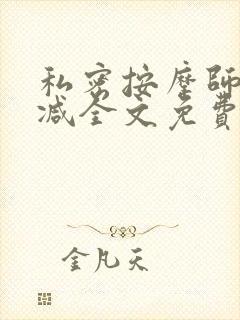 私密按摩師
减全文免費
金凡天